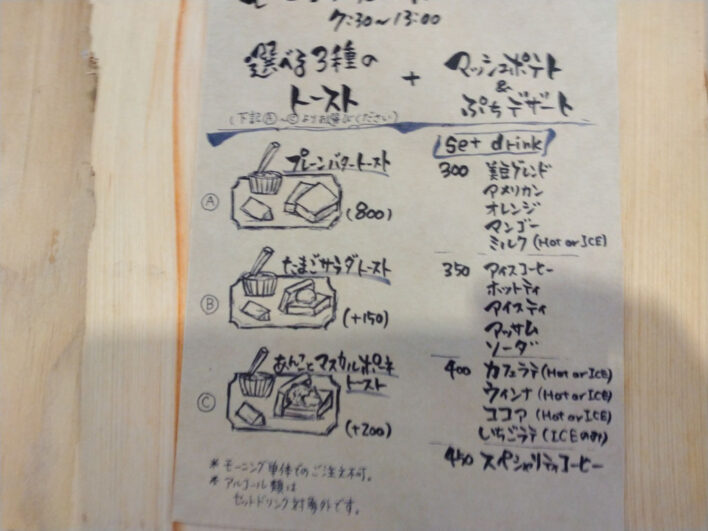 7:30~13:00
選べる3種の
トースト
(下記Ⓐ~Ⓒよりお選びください)
+
マッシュポテト
&
ぷちデザート
Ⓐ
プレーンバタートースト
(800)
Ⓑ
たまごサラダトースト
(+150)
Ⓒ
あんことマスカルポーネ
トースト
(+200)
* モーニング単体でのご注文不可。
* アルコール類は
セットドリンク対象外です。
Set drink
300 美豆ブレンド
アメリカン
オレンジ
マンゴー
ミルク(Hot or ICE)
350 アイスコーヒー
ホットティ
アイスティ
アッサム
ソーダ
400 カフェラテ(Hot or ICE)
ウィンナ(Hot or ICE)
ココア(Hot or ICE)
いちごラテ(ICEのみ)
450 スペシャリティコーヒー